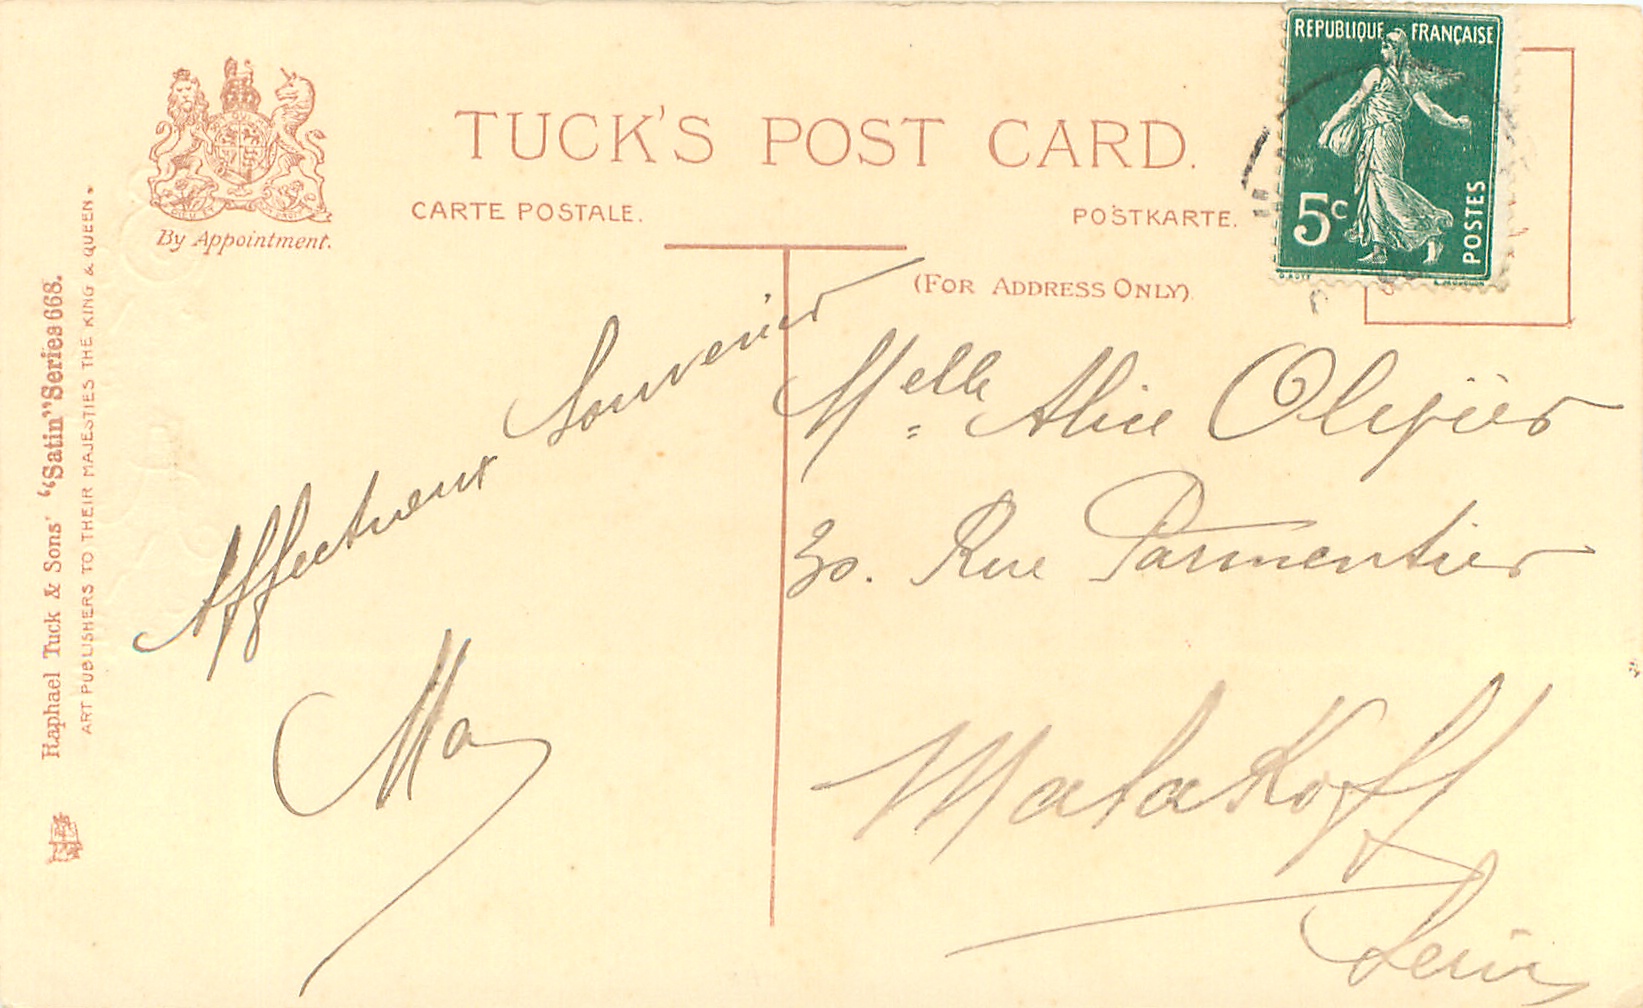 TUCK'S POST CARD.
CARTE POSTALE.
POSTKARTE.
(FOR ADDRESS ONLY)
By Appointment.
Raphael Tuck & Sons' "Satin" Series 668.
ART PUBLISHERS TO THEIR MAJESTIES THE KING & QUEEN.
REPUBLIQUE FRANÇAISE
5c
POSTES
Affectueux Souvenir
Ma
Melle Alice
30. Rue Parmentier
Malakoff
Seine